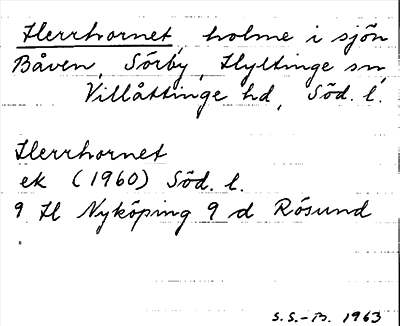 Herrhornet holme i sjön
Båven, Sörby, Hyltinge sn,
Villåttinge hd, Söd. l.
Herrhornet
ek (1960) Söd. l.
9 H Nyköping 9 d Rösund
S.S.-B. 1963